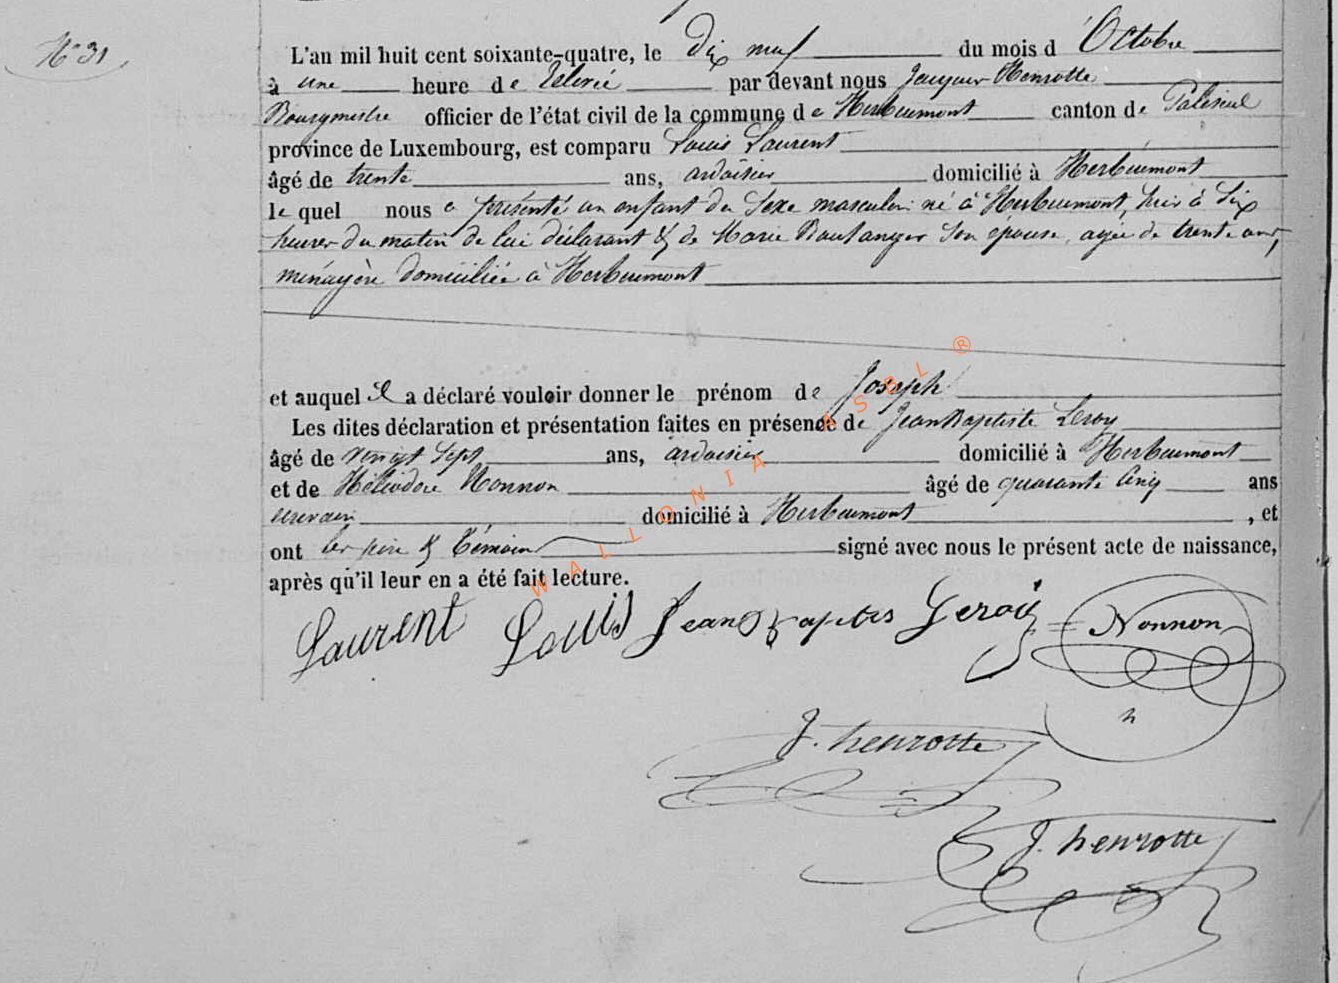 N° 31
L'an mil huit cent soixante-quatre, le Dix neuf du mois d'Octobre
à une heure de relevée par devant nous Jacques Henrotte
Bourgmestre officier de l'état civil de la commune de Herbeumont canton de Paliseul
province de Luxembourg, est comparu Louis Laurent
âgé de trente ans, ardoisier domicilié à Herbeumont
le quel nous a présenté un enfant du sexe masculin né à Herbeumont, hier à Six
heures du matin de lui déclarant & de Marie Boulanger son épouse, agée de trente ans,
ménagère domiciliée à Herbeumont
et auquel il a déclaré vouloir donner le prénom de Joseph
Les dites déclaration et présentation faites en présence de Jean Baptiste Leroy
âgé de vingt sept ans, ardoisier domicilié à Herbeumont
et de Héliodore Nonnon âgé de quarante cinq ans
domicilié à Herbeumont, et
ont les père & témoins signé avec nous le présent acte de naissance,
après qu'il leur en a été fait lecture.
Laurent Louis Jean Baptes Geroiy Nonnon
h
J. henrotte
J. henrotte
WALLONIA ASBL ®